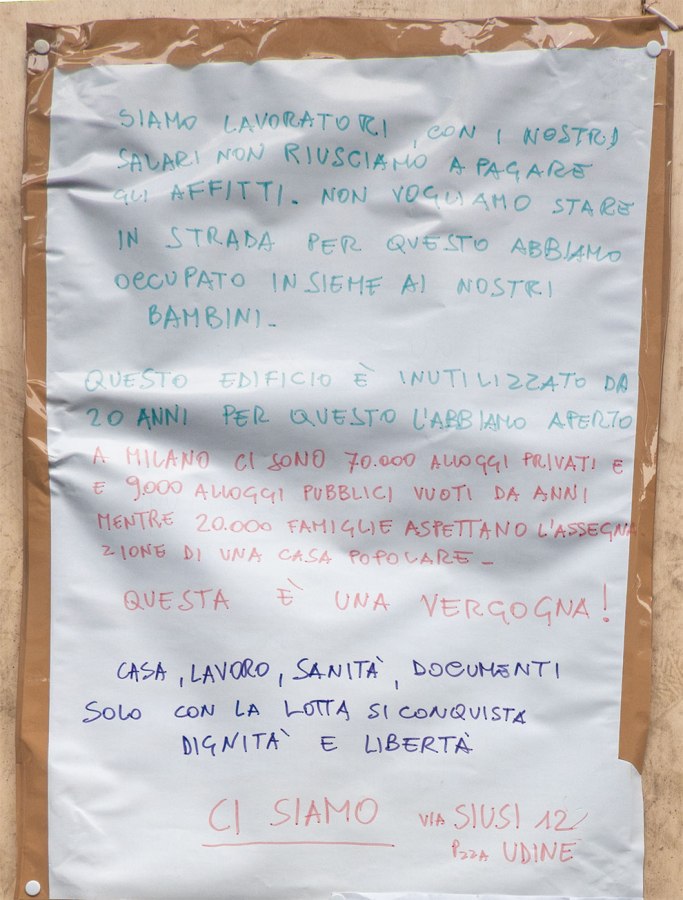 SIAMO LAVORATORI, CON I NOSTRI
SALARI NON RIUSCIAMO A PAGARE
GLI AFFITTI. NON VOGLIAMO STARE
IN STRADA PER QUESTO ABBIAMO
OCCUPATO INSIEME AI NOSTRI
BAMBINI.
QUESTO EDIFICIO È INUTILIZZATO DA
20 ANNI PER QUESTO L'ABBIAMO APERTO
A MILANO CI SONO 70.000 ALLOGGI PRIVATI E
E 9.000 ALLOGGI PUBBLICI VUOTI DA ANNI
MENTRE 20.000 FAMIGLIE ASPETTANO L'ASSEGNA
ZIONE DI UNA CASA POPOLARE.
QUESTA È UNA VERGOGNA!
CASA, LAVORO, SANITÀ, DOCUMENTI
SOLO CON LA LOTTA SI CONQUISTA
DIGNITÀ E LIBERTÀ
CI SIAMO VIA SIUSI 12
Pzza UDINE